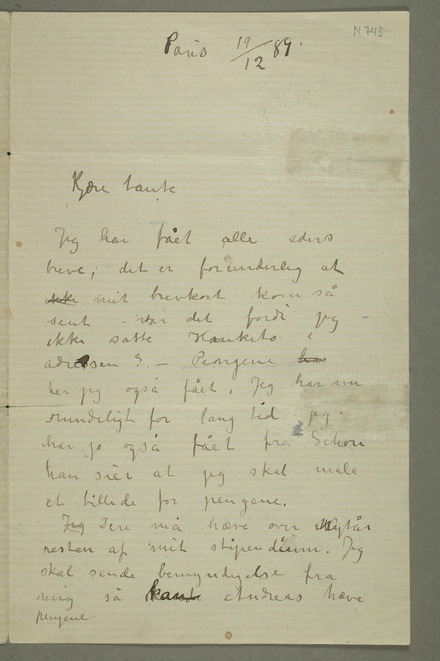 N 743
Paris 19/12 89.
Kjære tante
Jeg har fået alle eders
breve, det er forunderlig at
mit brevkort kom så
sent – var det fordi jeg –
ikke satte Hauketo i
adressen? – Pengene
har jeg også fået. Jeg har nu
rundeligt for lang tid jeg
har jo også fået fra Schou
han sier at jeg skal male
et billede for pengene.
Jeg Dere må hæve over Nytår
resten af mit stipendium. Jeg
skal sende bemyndigelse fra
mig så Andreas hæve
pengene